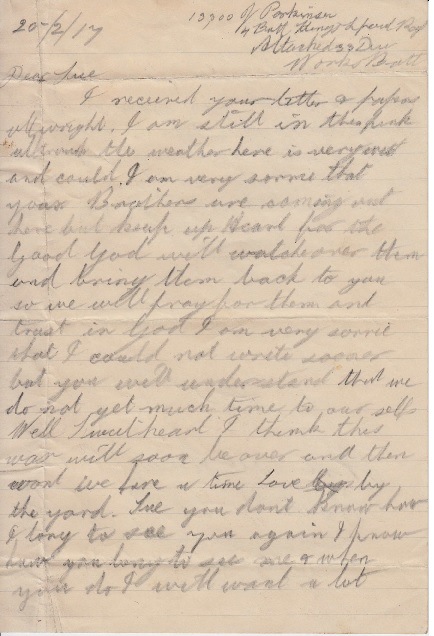 20/2/17
13300 J Parkinson
4 Batt Kings Liverpool Regt
Attached 33 Div
Works Batt
Dear Sue
I received your letter & papers
all wright. I am still in the pink
the weather here is very wett
and could. I am very sorrie that
your Brothers are coming out
here but keep up Heart for the
Good God will watch over them
and bring them back to you
so we will pray for them and
trust in God I am very sorrie
that I could not write sooner
but you will understand that we
do not get much time to our selfs
Well Sweetheart I think this
war will soon be over and then
wont we have a time Love by
the yard. Sue you dont know how
I long to see you again I know
how you long to see me & when
you do I will want a lot